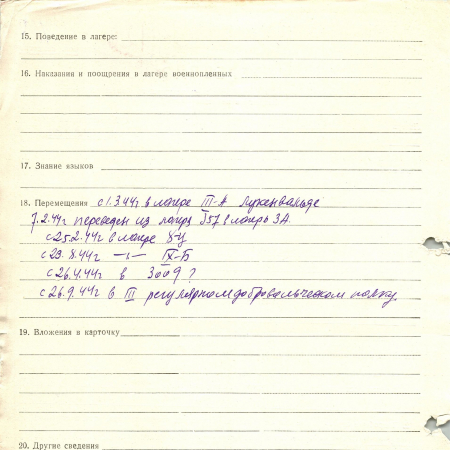 15. Поведение в лагере:
16. Наказания и поощрения в лагере военнопленных
17. Знание языков
18. Перемещения с 1.3.44г в лагере III-А Лукенвальде
7.2.44г переведен из лагеря 357 в лагерь 3А.
с 25.2.44г в лагере
с 23.8.44г —"— IX-Б
с 26.4.44г в 3009?
с 26.9.44г в III регулярном добровольческом полку.
19. Вложения в карточку
20. Другие сведения